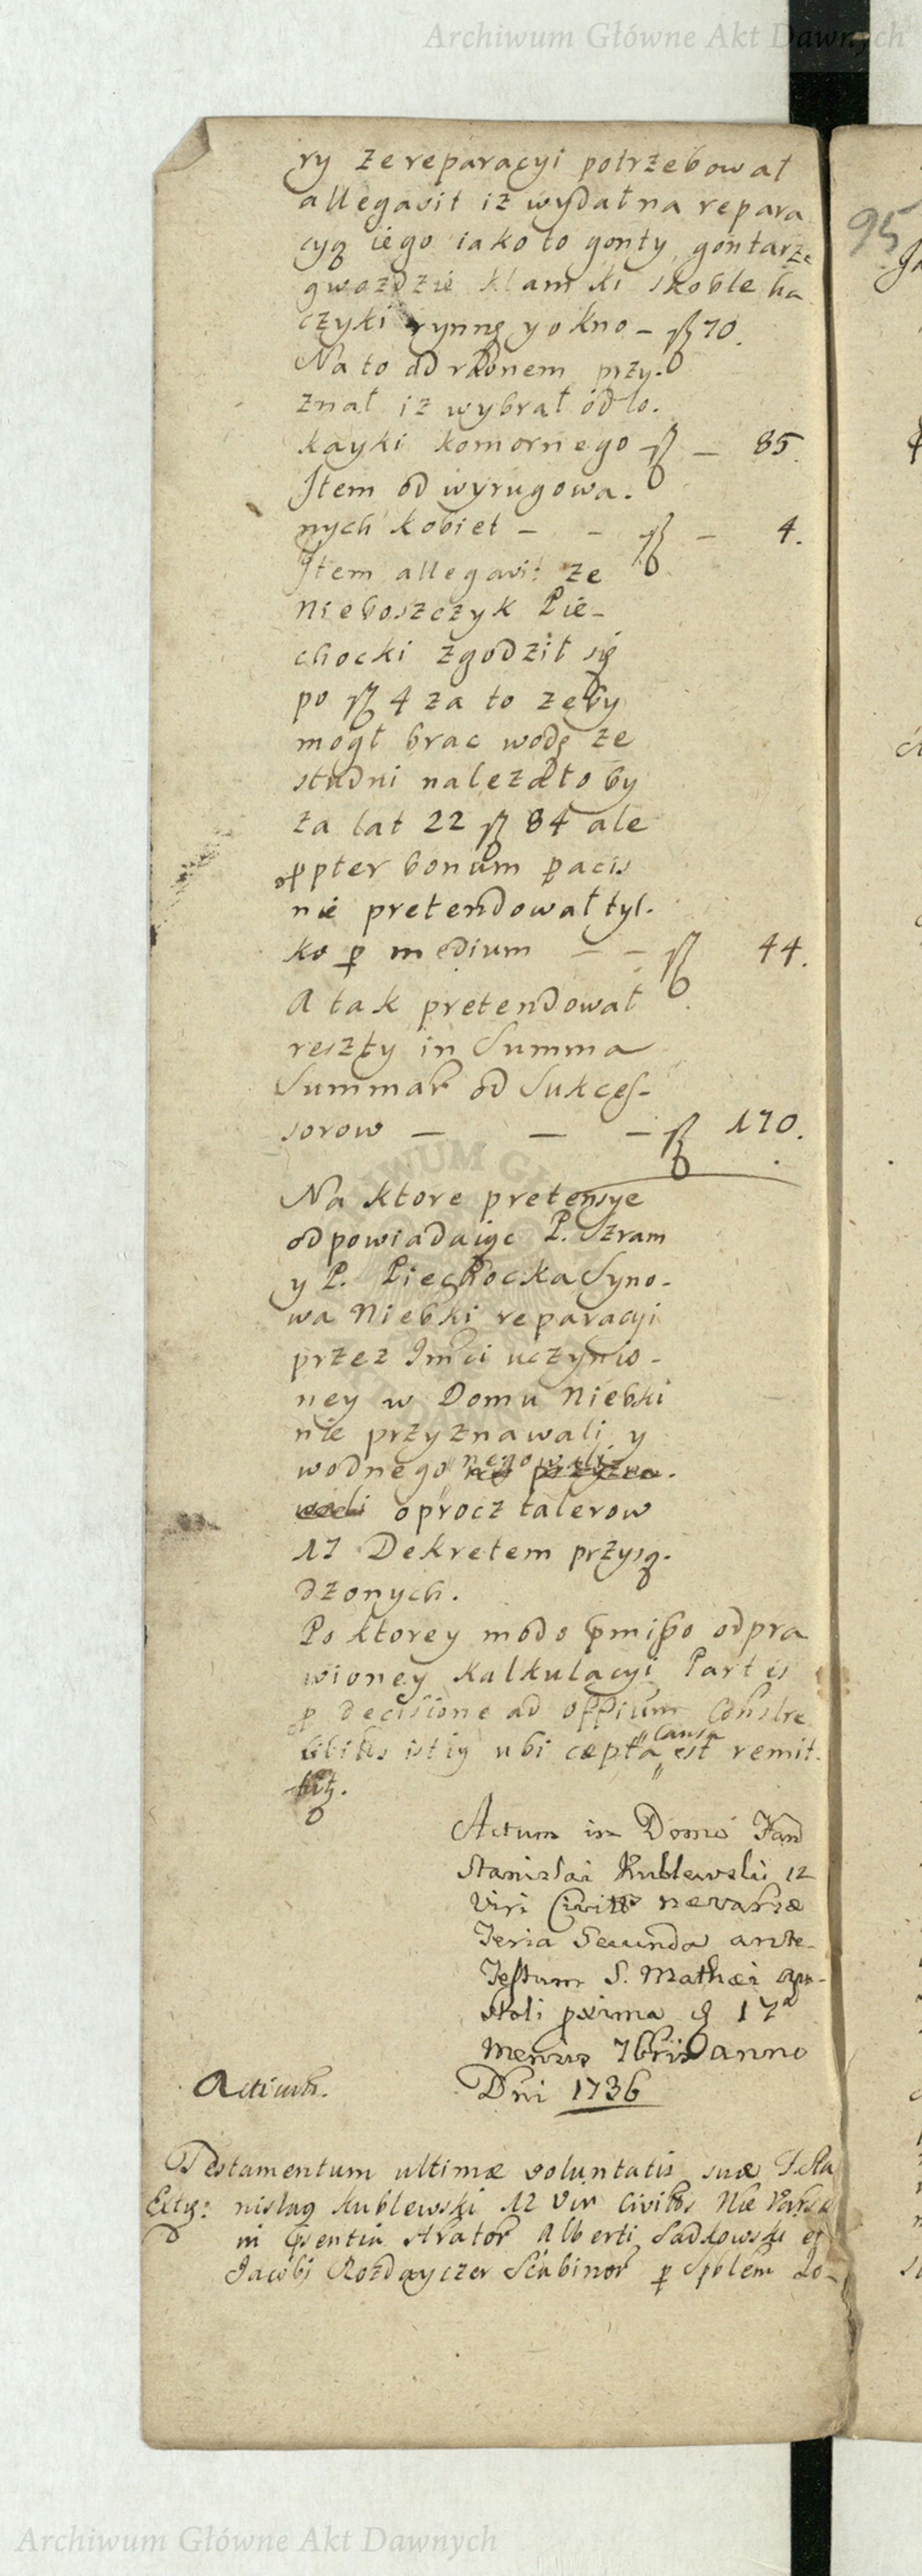 Archiwum Główne Akt Dawnych
ry ze reparacyi potrzebował
allegavit iż wydał na repara
cyą iego iako to gonty gontarze
gwozdzie klamki skoble ha
czyki rynnę y okno – 70.
95
Na to ad rationem przy-
znał iz wybrał od lo-
kayki komornego – 85.
Item od wyrugowa-
nych kobiet – – – 4.
Item allegavit ze
Nieboszczyk Pie-
chocki zgodził się
po 4 za to zeby
mogł brac wodę ze
studni nalezałoby
za lat 22 84 ale
ppter bonum pacis
nie pretendował tyl-
ko p medium – – 44.
A tak pretendował
reszty in Summa
Summar od Sukces-
sorow – – – 170.
Na ktore pretensye
odpowiadaiąc P. Szram
y P. Piechocka Syno-
wa Niebki reparacyi
przez Imci uczynio-
ney w Domu Niebki
nie przyznawali y
wodnego negowali
oprocz talerow
17 Dekretem przysą-
dzonych.
Po ktorey modo pmisso odpra
wioney Kalkulacyi Partes
p decisione ad offium Consulre
ubi cæpta causa est remit-
Actum in Domo Fand
Stanislai Kublewski 12
Viri Civitts nevarsæ
Feria Secunda ante
Festum S. Mathæi apo-
stoli pxima d 17a
Mensis 7bris anno
Dni 1736
Testamentum ultimæ voluntatis suæ Sta
nislaq Kublewski 12 Vir Civittis Næ Varsæ
in psentia Arator Alberti Sadkowski et
Jacobi Rozdayczer Scabinor p Spblem Lo-
Archiwum Główne Akt Dawnych